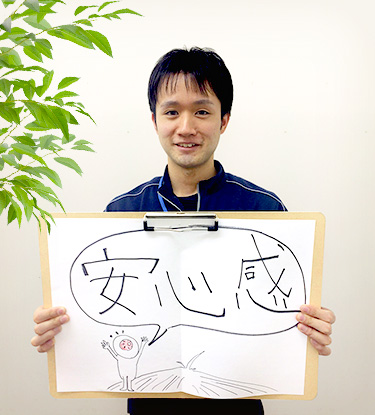 安心感